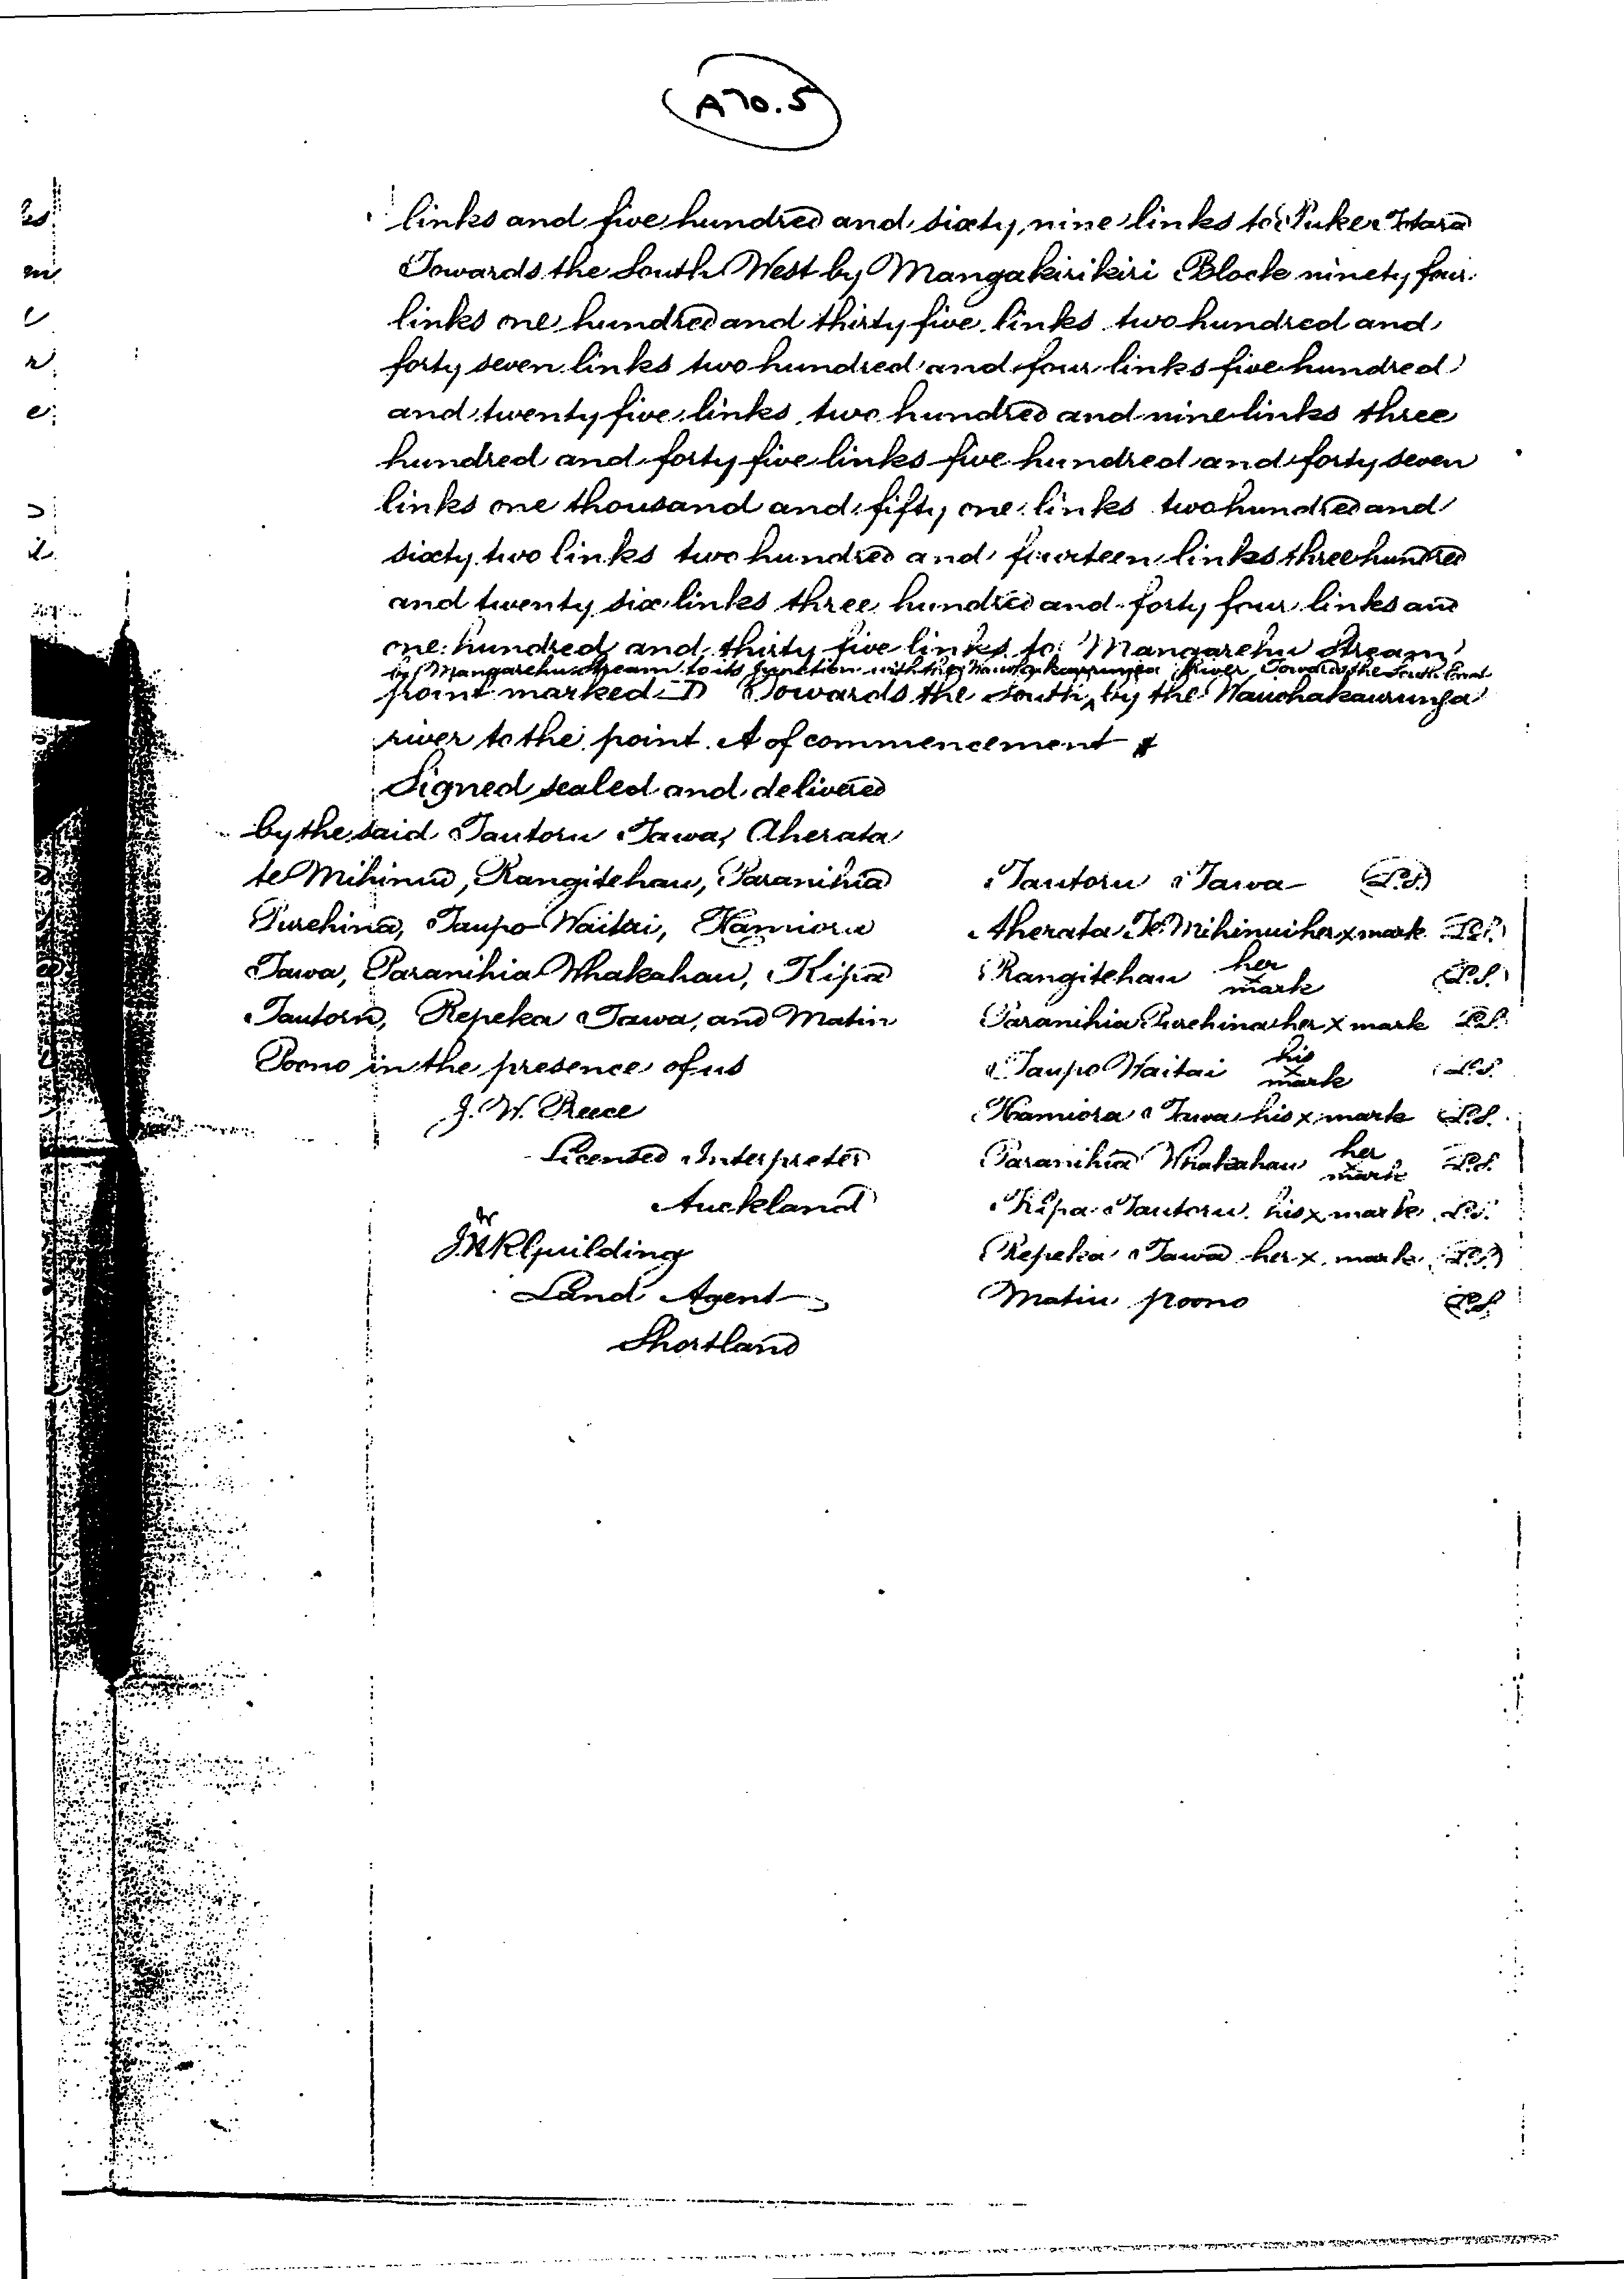 A70.5
links and five hundred and sixty nine links to Puke Totara
Towards the South West by Mangakirikiri Block ninety four
links one hundred and thirty five links two hundred and
forty seven links two hundred and four links five hundred
and twenty five links two hundred and nine links three
hundred and forty five links five hundred and forty seven
links one thousand and fifty one links two hundred and
sixty two links two hundred and fourteen links three hundred
and twenty six links three hundred and forty four links and
one hundred and thirty five links to Mangarehu Stream
by Mangarehu Stream to its junction with the river Towards the South East
point marked D Towards the South by the Wauohakaurunga
river to the point A of commencement
Signed sealed and delivered
by the said Tautoru Tawa, Aherata
te Mihinui, Rangitehau, Paranihia
Purehina, Taupo Waitai, Hamiora
Tawa, Paranihia Whakahau, Kipa
Tautoru, Repeka Tawa, and Matiu
Poono in the presence of us
J. W. Preece
Licensed Interpreter
Auckland
Land Agent
Shortland
Tautoru Tawa L.S.
Aherata Te Mihinui her x mark L.S.
Rangitehau her x mark L.S.
Paranihia Purehina her x mark L.S.
Taupo Waitai his x mark L.S.
Hamiora Tawa his x mark L.S.
Paranihia Whakahau her x mark L.S.
Kipa Tautoru his x mark L.S.
Repeka Tawa her x mark L.S.
Matiu poono L.S.